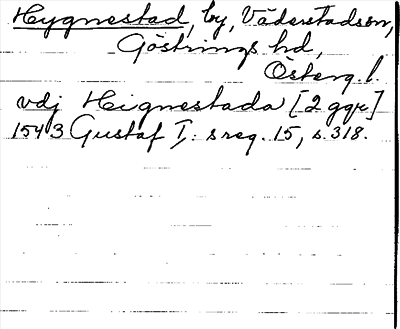 Hygnestad, by, Väderstadsn,
Göstrings hd,
Österg. l.
vdj Hignestada [2 ggr]
1543 Gustaf I: s reg. 15, s. 318.